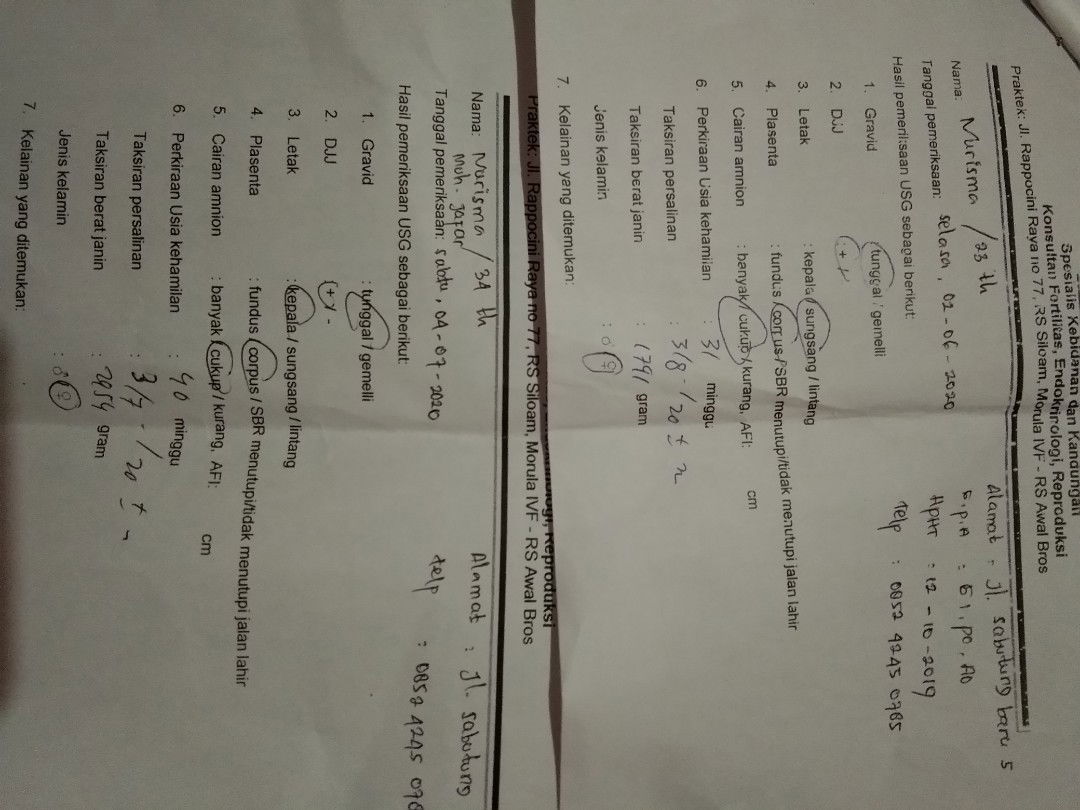 Spesialis Kebidanan dan Kandungan
Konsultan Fertilitas, Endokrinologi, Reproduksi
Praktek: Jl. Rappocini Raya no 77, RS Siloam, Morula IVF - RS Awal Bros
Nama: Nurisma / 23 th Alamat : Jl. sabutung baru 5
Tanggal pemeriksaan: selasa, 02-06-2020 G,P,A : G1, P0, A0
HPHT : 12-10-2019
Hasil pemeriksaan USG sebagai berikut: Telp : 0852 4245 0785
1. Gravid : tunggal / gemelli
2. DJJ : +
3. Letak : kepala / sungsang / lintang
4. Plasenta : fundus / corpus / SBR menutupi/tidak menutupi jalan lahir
5. Cairan amnion : banyak / cukup / kurang, AFI: cm
6. Perkiraan Usia kehamilan : 31 minggu
Taksiran persalinan : 3/8 - / 20 ±
Taksiran berat janin : 1791 gram
Jenis kelamin : ♂ ♀
7. Kelainan yang ditemukan:
Reproduksi
Praktek: Jl. Rappocini Raya no 77, RS Siloam, Morula IVF - RS Awal Bros
Nama: Nurisma / 34 th Alamat : Jl. sabutung
Muh. Jafar
Tanggal pemeriksaan: sabtu, 04-07-2020 telp : 0852 4245 078
Hasil pemeriksaan USG sebagai berikut:
1. Gravid : tunggal / gemelli
2. DJJ (+) -
3. Letak : kepala / sungsang / lintang
4. Plasenta : fundus / corpus / SBR menutupi/tidak menutupi jalan lahir
5. Cairan amnion : banyak / cukup / kurang, AFI: cm
6. Perkiraan Usia kehamilan : 40 minggu
Taksiran persalinan : 3/7 - / 20 ±
Taksiran berat janin : 2954 gram
Jenis kelamin : ♂ ♀
7. Kelainan yang ditemukan: